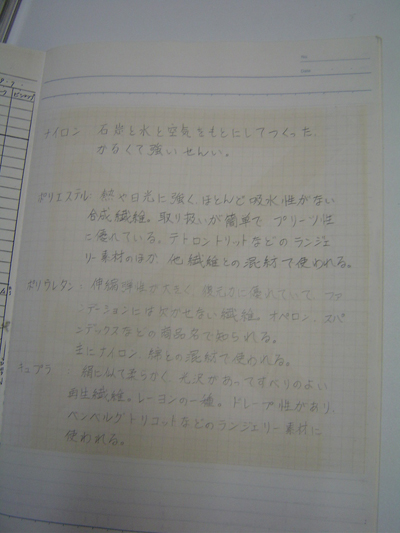 ナイロン 石炭と水と空気をもとにしてつくった、
かるくて強いせんい。
ポリエステル 熱や日光に強く、ほとんど吸水性がない
合成繊維。取り扱いが簡単で プリーツ性
に優れている。テトロントリットなどのランジェ
リー素材のほか、他繊維との混紡で使われる。
ポリウレタン: 伸縮 が大きく、復元力に優れていて、ファ
ンデーションには欠かせない繊維。オペロン、スパ
ンデックスなどの商品名で知られる。
主にナイロン、綿との混紡で使われる。
キュプラ 絹に似て柔らかく、光沢があってすべりのよい
再生繊維。レーヨンの一種。ドレープ性があり、
ベンベルグトリコットなどのランジェリー素材に
使われる。